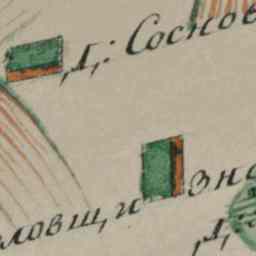 Д: Соснов
ловщи
зна
Д: